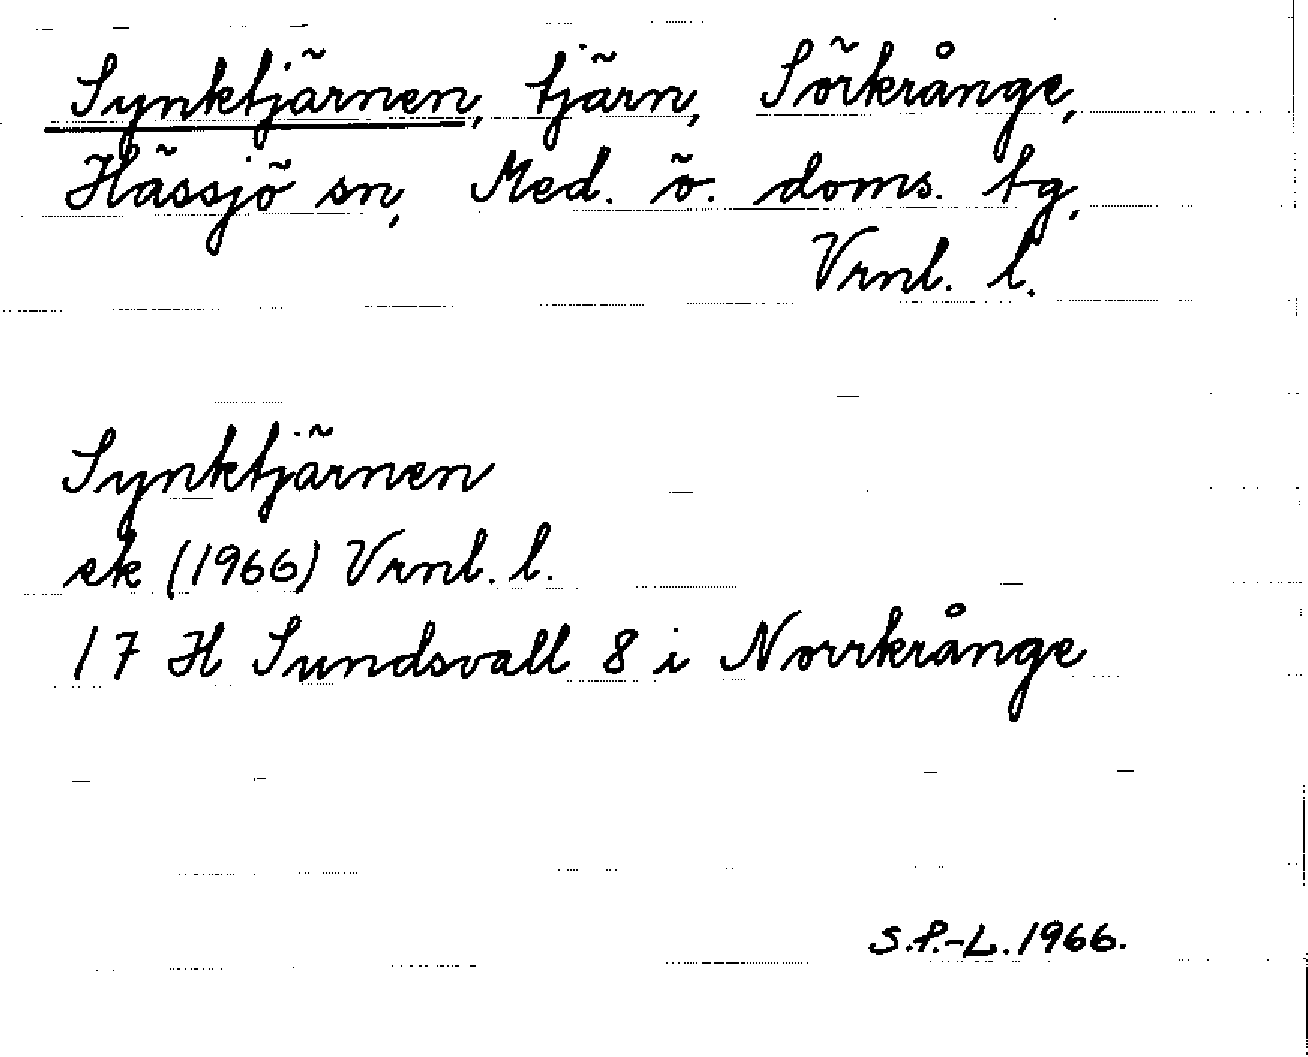 Synktjärnen, tjärn, Sörkrånge,
Hässjö sn, Med. ö. doms. tg,
Vrnl. l.
Synktjärnen
ek (1966) Vrnl. l.
17 H Sundsvall 8 i Norrkrånge
S.P.-L. 1966.